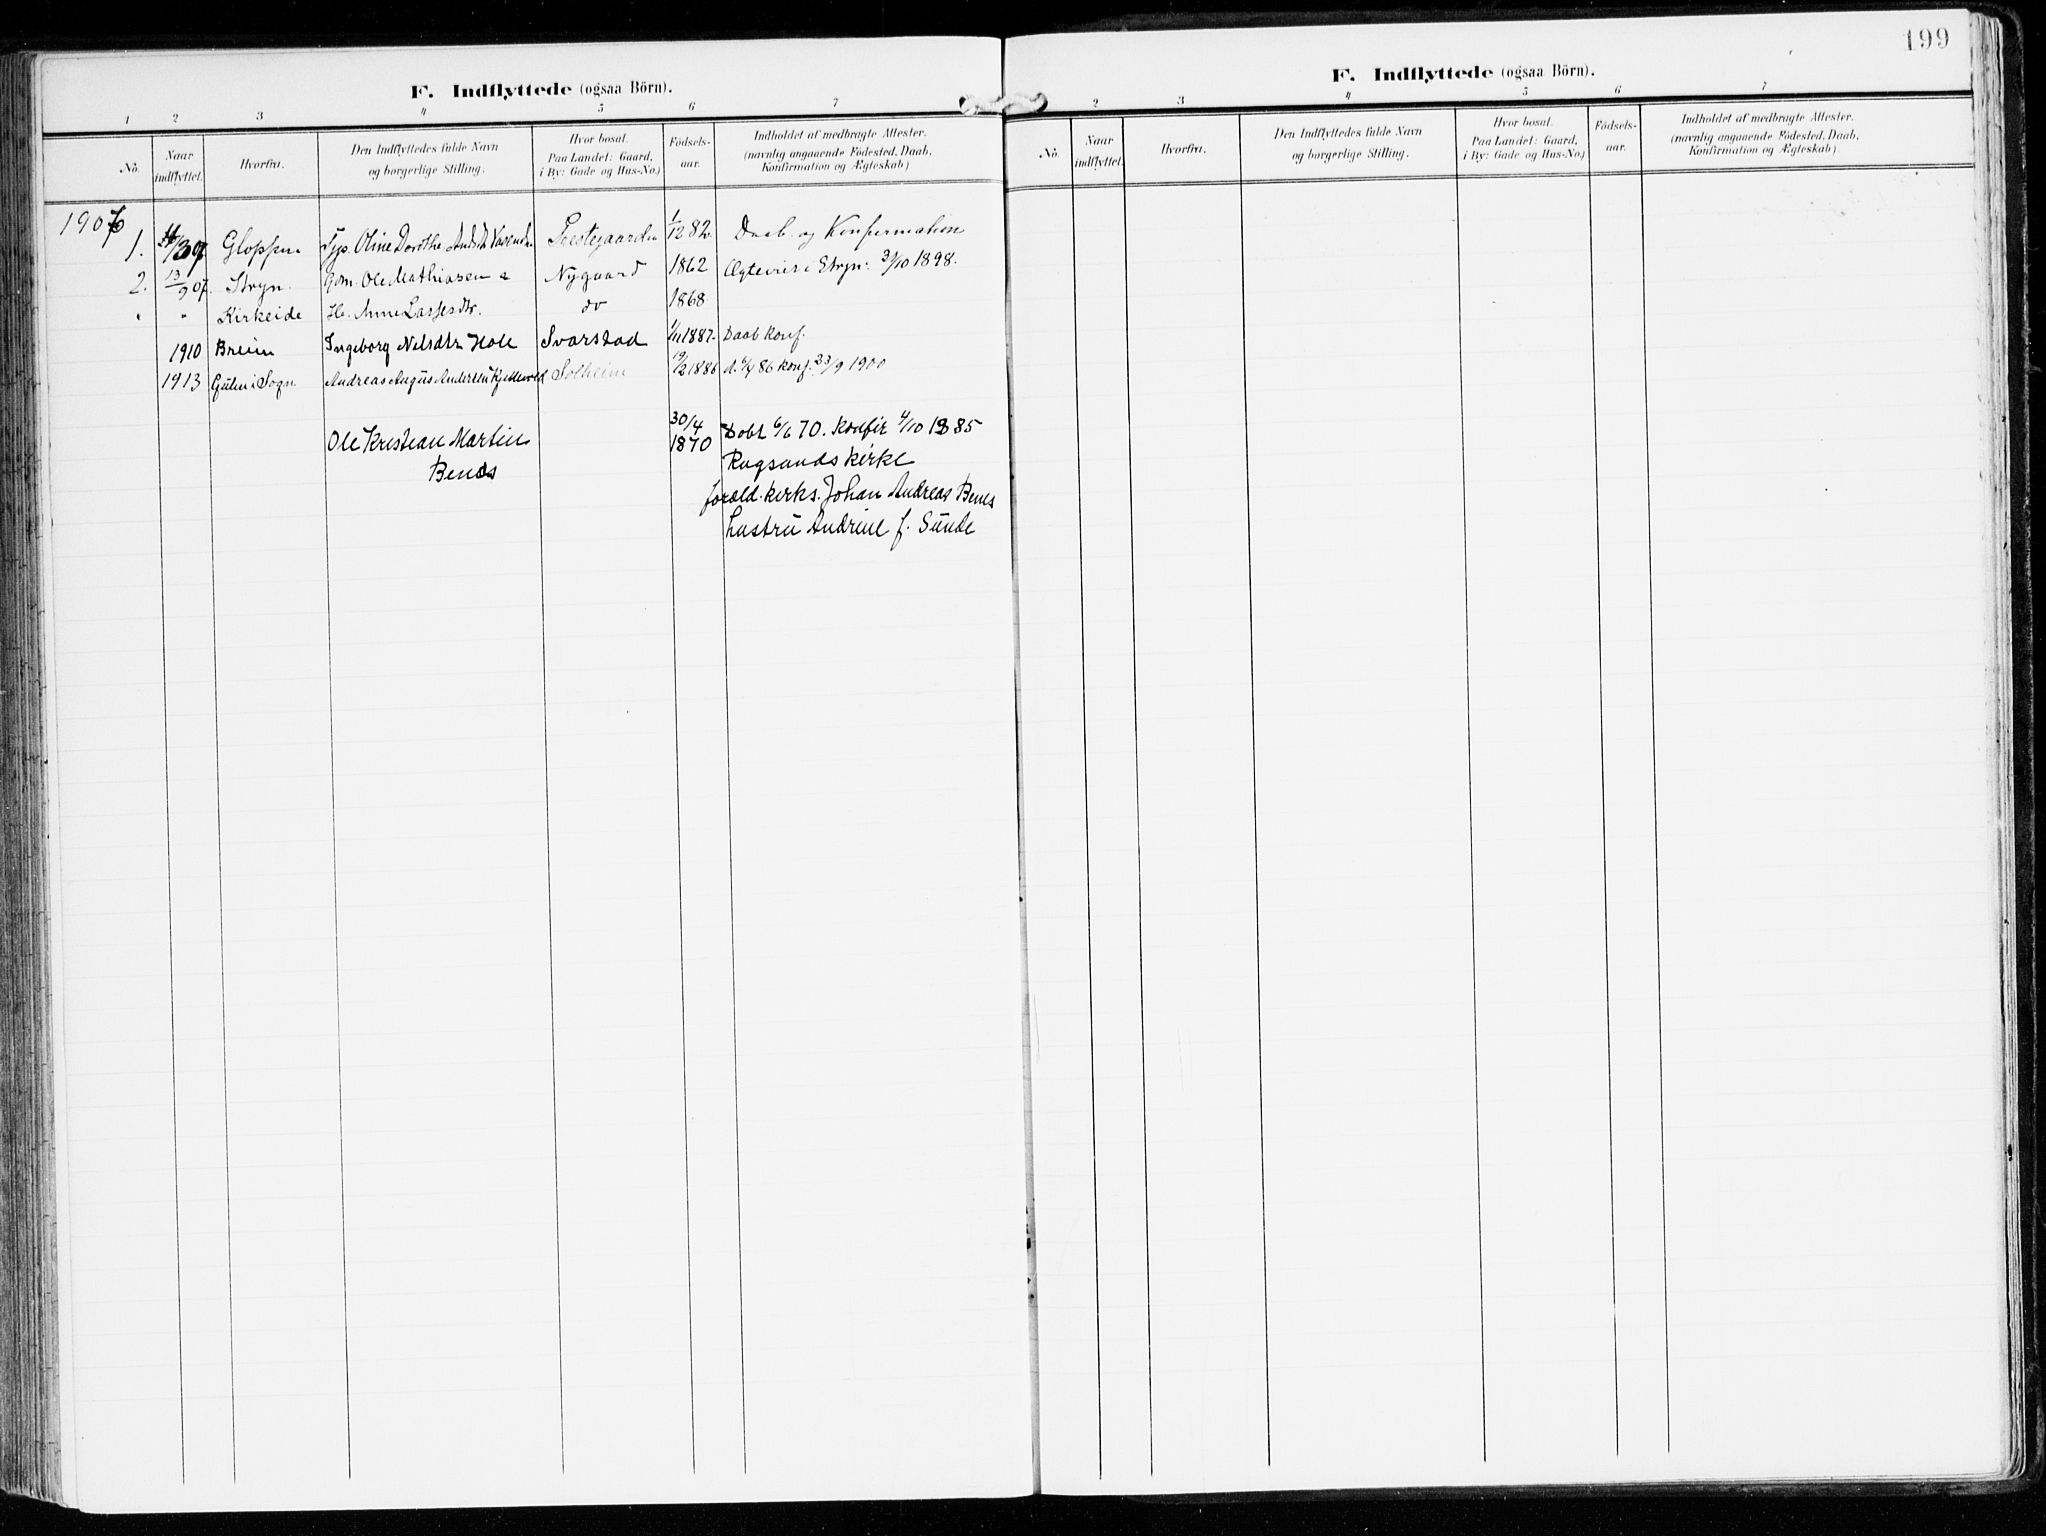 F. Indflyttede (ogsaa Börn).
1 2 3 4 5 6 7
No. Naar indflyttet. Hvorfra. Den Indflyttedes fulde Navn og borgerlige Stilling. Hvor bosat. Paa Landet: Gaard, i By: Gade og Hus-No.) Födsels-aar. Indholdet af medbragte Attester. (navnlig angaaende Födested, Daab, Konfirmation og Ægteskab)
1907
1. Gloppen Oline Dorothe Prestegaarden 1/12 82. Daab og Konfirmation
2. 13/9 07. Stryn Gm. Ole Mathiasen & Nygaard 1862 Ægteviet i Stryn 1898.
" " Kirkeide H. Anne Lassesdtr. do 1868
1910 Breim Ingeborg Nilsdtr Hole Svarstad 1/11 1887. Daab konf.
1913 Gulen i Sogn Andreas Augus Andersen Solheim 19/2 1886 d. 6/4 86 konf. 23/9 1900
Ole Kristian Martin 30/4 1870 Dobt 6/6 70. Konfir 4/10 1885
Benes Rugsunds kirke
foræld. kirks. Johan Andreas Benes
hustru Andrine f. Sunde
199
F. Indflyttede (ogsaa Börn).
2 3 4 5 6 7
No. Naar indflyttet. Hvorfra. Den Indflyttedes fulde Navn og borgerlige Stilling. Hvor bosat. Paa Landet: Gaard, i By: Gade og Hus-No.) Födsels-aar. Indholdet af medbragte Attester. (navnlig angaaende Födested, Daab, Konfirmation og Ægteskab)